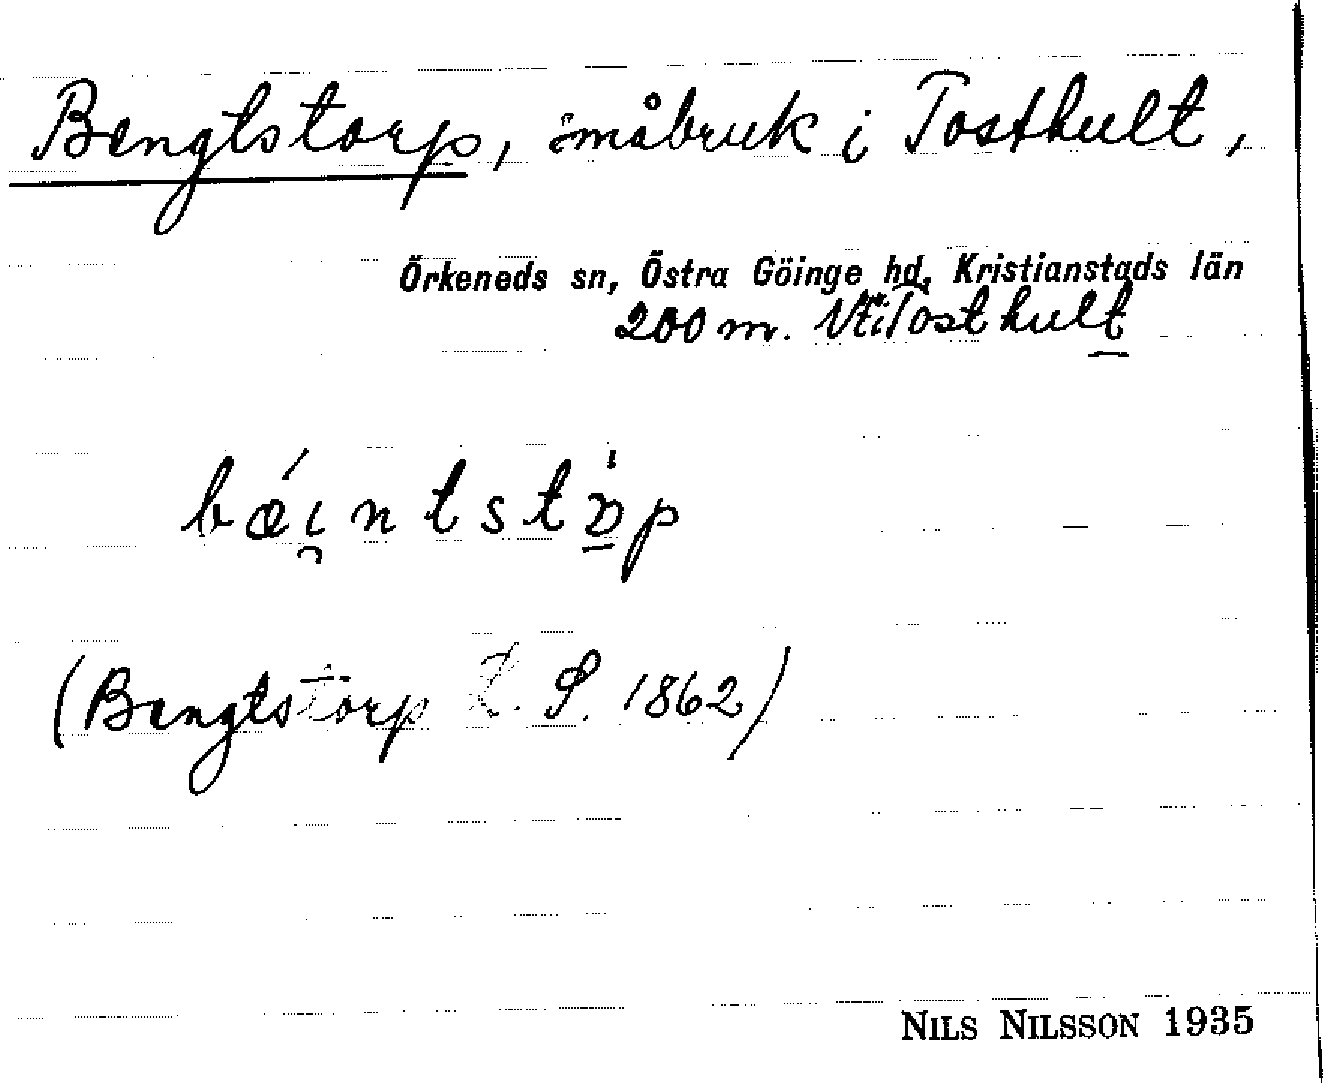 Bengtstorp, småbruk i Tosthult,
Örkeneds sn, Östra Göinge hd, Kristianstads län
200 m. V Tosthult
bǽi̯ntstɒ̱̍p
(Bengtstorp L. S. 1862)
NILS NILSSON 1935